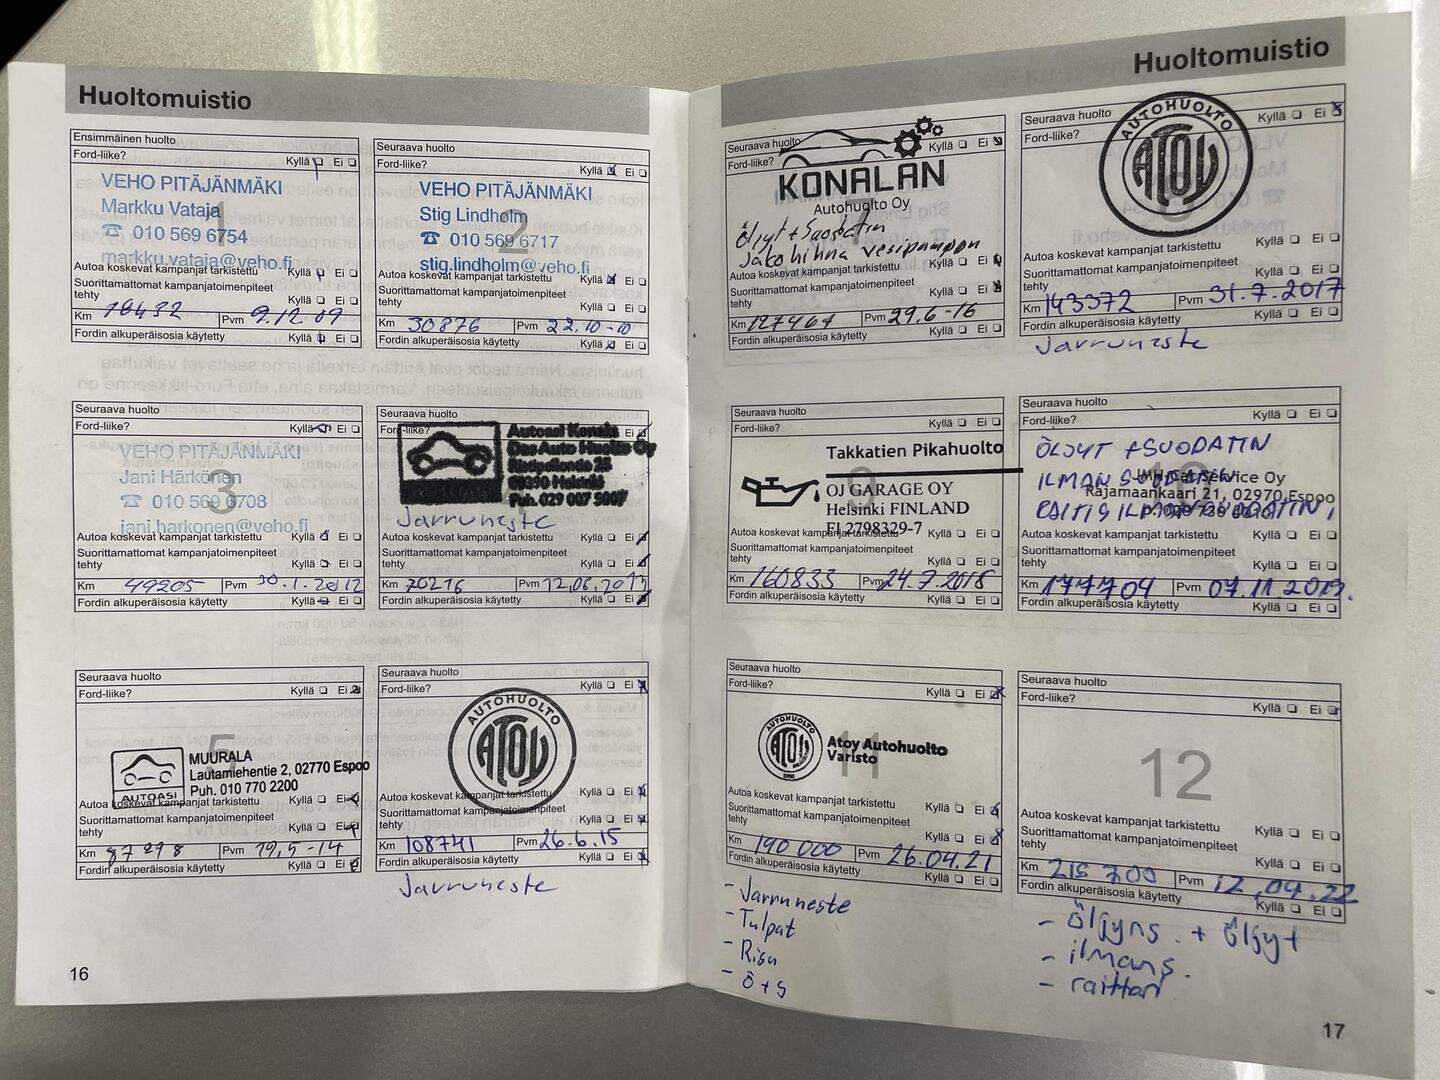 Huoltomuistio
Ensimmäinen huolto
Ford-liike? Kyllä Ei
VEHO PITÄJÄNMÄKI
Markku Vataja
☎ 010 569 6754
markku.vataja@veho.fi
1
Autoa koskevat kampanjat tarkistettu Kyllä Ei
Suorittamattomat kampanjatoimenpiteet
tehty Kyllä Ei
Km 18432 Pvm 9.12 09
Fordin alkuperäisosia käytetty Kyllä Ei
Seuraava huolto
Ford-liike? Kyllä Ei
VEHO PITÄJÄNMÄKI
Stig Lindholm
☎ 010 569 6717
stig.lindholm@veho.fi
2
Autoa koskevat kampanjat tarkistettu Kyllä Ei
Suorittamattomat kampanjatoimenpiteet
tehty Kyllä Ei
Km 30876 Pvm 22.10-10
Fordin alkuperäisosia käytetty Kyllä Ei
Seuraava huolto
Ford-liike? Kyllä Ei
VEHO PITÄJÄNMÄKI
Jani Härkönen
☎ 010 569 6708
jani.harkonen@veho.fi
3
Autoa koskevat kampanjat tarkistettu Kyllä Ei
Suorittamattomat kampanjatoimenpiteet
tehty Kyllä Ei
Km 49205 Pvm 30.1.2012
Fordin alkuperäisosia käytetty Kyllä Ei
Seuraava huolto
Ford-liike? Ei
Autoasi Konala
Das Auto Huolto Oy
Ristipellontie 25
00390 Helsinki
Puh. 029 007 5007
Jarruneste
Autoa koskevat kampanjat tarkistettu Kyllä Ei
Suorittamattomat kampanjatoimenpiteet
tehty Kyllä Ei
Km 70216 Pvm 12.06.2013
Fordin alkuperäisosia käytetty Kyllä Ei
Seuraava huolto
Ford-liike? Kyllä Ei
5
AUTOASI
MUURALA
Lautamiehentie 2, 02770 Espoo
Puh. 010 770 2200
Autoa koskevat kampanjat tarkistettu Kyllä Ei
Suorittamattomat kampanjatoimenpiteet
tehty Kyllä Ei
Km 87298 Pvm 19.5-14
Fordin alkuperäisosia käytetty Kyllä Ei
Seuraava huolto
Ford-liike? Kyllä Ei
AUTOHUOLTO
ATOY
Autoa koskevat kampanjat tarkistettu Kyllä Ei
Suorittamattomat kampanjatoimenpiteet
tehty Kyllä Ei
Km 108741 Pvm 26.6.15
Fordin alkuperäisosia käytetty Kyllä Ei
Jarruneste
16
Huoltomuistio
Seuraava huolto
Ford-liike? Kyllä Ei
KONALAN
Autohuolto Oy
Öljyt + Suodatin
Jakohihna vesipumppu
Autoa koskevat kampanjat tarkistettu Kyllä Ei
Suorittamattomat kampanjatoimenpiteet
tehty Kyllä Ei
Km 127464 Pvm 29.6-16
Fordin alkuperäisosia käytetty Kyllä Ei
Seuraava huolto
Ford-liike? Kyllä Ei
AUTOHUOLTO
ATOY
Autoa koskevat kampanjat tarkistettu Kyllä Ei
Suorittamattomat kampanjatoimenpiteet
tehty Kyllä Ei
Km 143372 Pvm 31.7.2017
Fordin alkuperäisosia käytetty Kyllä Ei
Jarruneste
Seuraava huolto
Ford-liike? Kyllä Ei
Takkatien Pikahuolto
9
OJ GARAGE OY
Helsinki FINLAND
FI 2798329-7
Autoa koskevat kampanjat tarkistettu Kyllä Ei
Suorittamattomat kampanjatoimenpiteet
tehty Kyllä Ei
Km 160833 Pvm 24.7.2018
Fordin alkuperäisosia käytetty Kyllä Ei
Seuraava huolto
Ford-liike? Kyllä Ei
ÖLJYT + SUODATIN
ILMAN SUODATIN
Car Service Oy
10
Rajamaankaari 21, 02970 Espoo
Autoa koskevat kampanjat tarkistettu Kyllä Ei
Suorittamattomat kampanjatoimenpiteet
tehty Kyllä Ei
Km 177704 Pvm 07.11.2019.
Fordin alkuperäisosia käytetty Kyllä Ei
Seuraava huolto
Ford-liike? Kyllä Ei
AUTOHUOLTO
ATOY
Atoy Autohuolto
Varisto
11
Autoa koskevat kampanjat tarkistettu Kyllä Ei
Suorittamattomat kampanjatoimenpiteet
tehty Kyllä Ei
Km 190 000 Pvm 26.04.21
Fordin alkuperäisosia käytetty Kyllä Ei
- Jarruneste
- Tulpat
- Risu
- Ö+S
Seuraava huolto
Ford-liike? Kyllä Ei
12
Autoa koskevat kampanjat tarkistettu Kyllä Ei
Suorittamattomat kampanjatoimenpiteet
tehty Kyllä Ei
Km 215 700 Pvm 12.04.22
Fordin alkuperäisosia käytetty Kyllä Ei
- Öljyns. + Öljyt
- ilmans.
- raittari
17